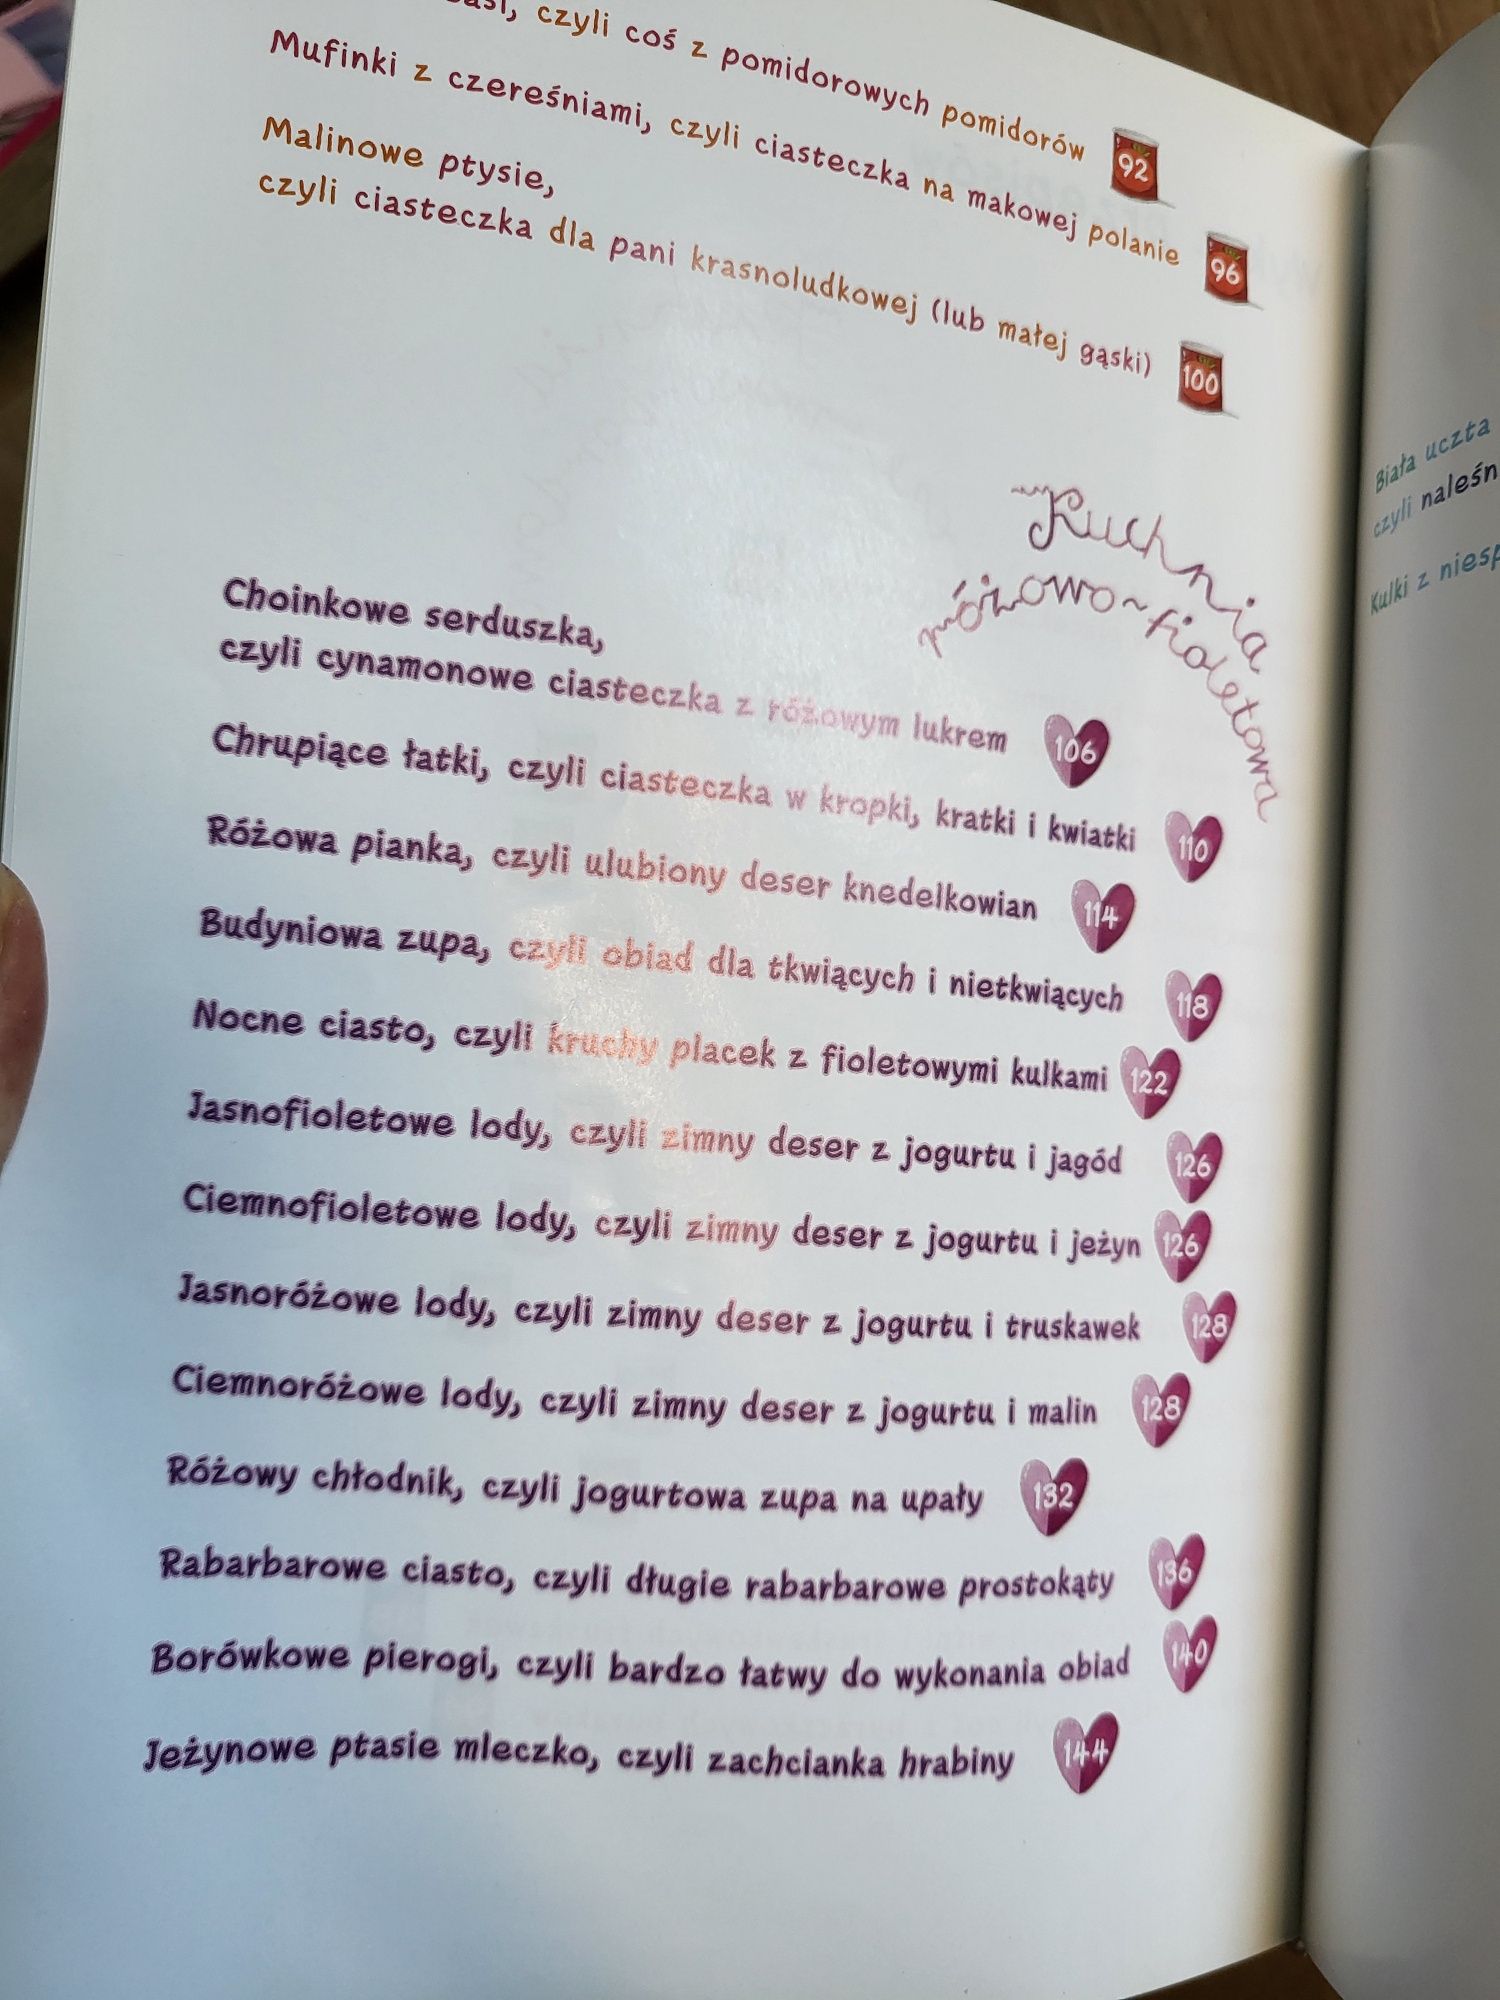 czyli coś z pomidorowych pomidorów 92
Mufinki z czereśniami, czyli ciasteczka na makowej polanie 96
Malinowe ptysie,
czyli ciasteczka dla pani krasnoludkowej (lub małej gąski) 100
Kuchnia
różowo-fioletowa
Choinkowe serduszka,
czyli cynamonowe ciasteczka z różowym lukrem 106
Chrupiące łatki, czyli ciasteczka w kropki, kratki i kwiatki 110
Różowa pianka, czyli ulubiony deser knedelkowian 114
Budyniowa zupa, czyli obiad dla tkwiących i nietkwiących 118
Nocne ciasto, czyli kruchy placek z fioletowymi kulkami 122
Jasnofioletowe lody, czyli zimny deser z jogurtu i jagód 126
Ciemnofioletowe lody, czyli zimny deser z jogurtu i jeżyn 126
Jasnoróżowe lody, czyli zimny deser z jogurtu i truskawek 128
Ciemnoróżowe lody, czyli zimny deser z jogurtu i malin 128
Różowy chłodnik, czyli jogurtowa zupa na upały 132
Rabarbarowe ciasto, czyli długie rabarbarowe prostokąty 136
Borówkowe pierogi, czyli bardzo łatwy do wykonania obiad 140
Jeżynowe ptasie mleczko, czyli zachcianka hrabiny 144
Biała uczta
czyli naleśn
Kulki z niesp